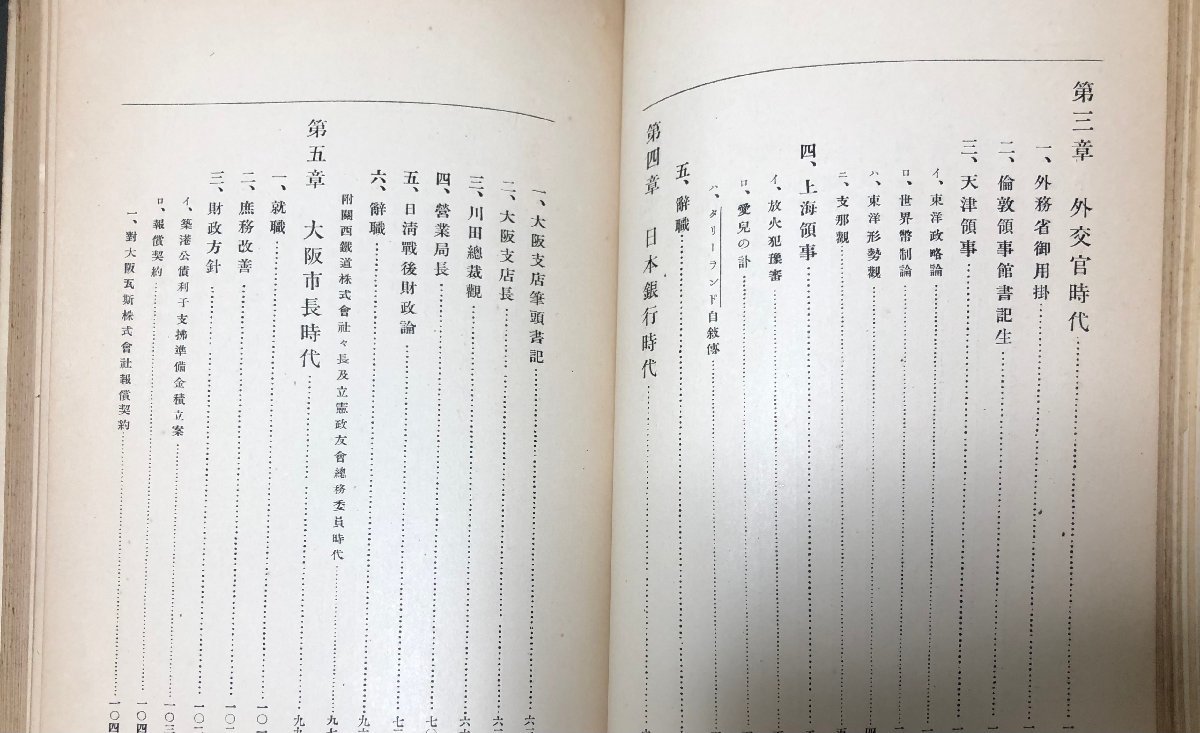 第三章 外交官時代
一、外務省御用掛
二、倫敦領事館書記生
三、天津領事
イ、東洋政略論
ロ、世界幣制論
ハ、東洋形勢觀
ニ、支那觀
四、上海領事
イ、放火犯豫審
ロ、愛兒の訃
ハ、タリーランド自敍傳
五、辭職
第四章 日本銀行時代
一、大阪支店筆頭書記
二、大阪支店長
三、川田總裁觀
四、營業局長
五、日清戰後財政論
六、辭職
附關西鐵道株式會社々長及立憲政友會總務委員時代
第五章 大阪市長時代
一、就職
二、庶務改善
三、財政方針
イ、築港公債利子支拂準備金積立案
ロ、報償契約
一、對大阪瓦斯株式會社報償契約